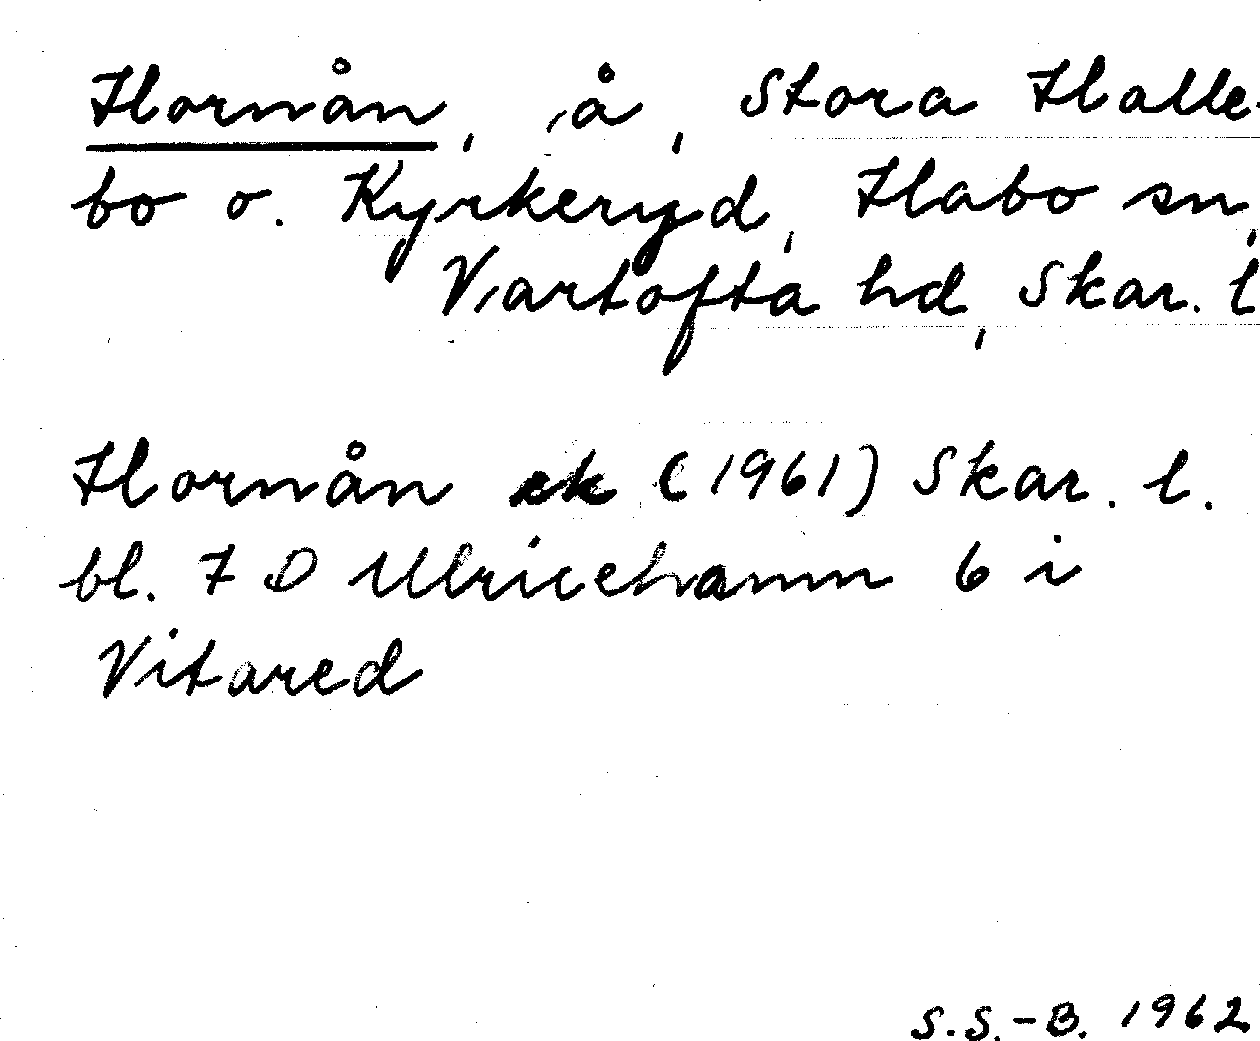 Hornån, å, Stora Halle-
bo o. Kyrkeryd, Habo sn,
Vartofta hd, Skar. l
Hornån ek (1961) Skar. l.
bl. 7 D Ulricehamn 6 i
Vitared
S.S.-B. 1962